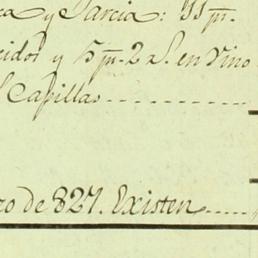 y Garcia: 11 p.
cidos y 5 p. 2 r. en vino
Capillas
ro de 827. Existen